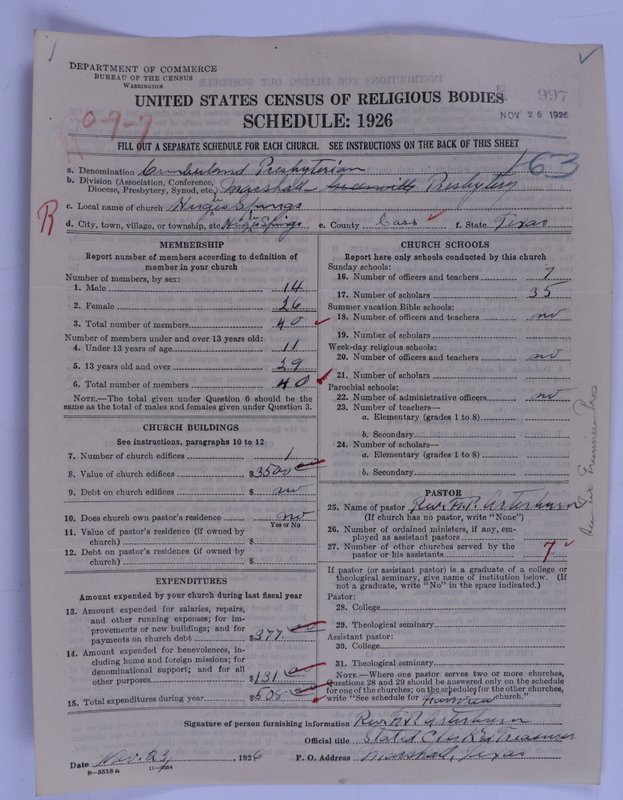 DEPARTMENT OF COMMERCE
BUREAU OF THE CENSUS
WASHINGTON
997
UNITED STATES CENSUS OF RELIGIOUS BODIES
NOV 26 1926
SCHEDULE: 1926
0-9-7
FILL OUT A SEPARATE SCHEDULE FOR EACH CHURCH. SEE INSTRUCTIONS ON THE BACK OF THIS SHEET
163
a. Denomination Cumberland Presbyterian
b. Division (Association, Conference, Diocese, Presbytery, Synod, etc.) Marshall Presbytery
c. Local name of church Springs
R
d. City, town, village, or township, etc. Springs e. County Cass f. State Texas
MEMBERSHIP
Report number of members according to definition of
member in your church
Number of members, by sex:
1. Male 14
2. Female 26
3. Total number of members 40
Number of members under and over 13 years old:
4. Under 13 years of age 11
5. 13 years old and over 29
6. Total number of members 40
NOTE.—The total given under Question 6 should be
same as the total of males and females given under Question 3.
CHURCH BUILDINGS
See instructions, paragraphs 10 to 12
7. Number of church edifices 1
8. Value of church edifices $3500 00
9. Debt on church edifices $ no
10. Does church own pastor's residence no
Yes or No
11. Value of pastor's residence (if owned by
church) $
12. Debt on pastor's residence (if owned by
church) $
EXPENDITURES
Amount expended by your church during last fiscal year
13. Amount expended for salaries, repairs,
and other running expenses; for im-
provements or new buildings; and for
payments on church debt $377.00
14. Amount expended for benevolences, in-
cluding home and foreign missions; for
denominational support; and for all
other purposes $131
15. Total expenditures during year $508
CHURCH SCHOOLS
Report here only schools conducted by this church
Sunday schools:
16. Number of officers and teachers 7
17. Number of scholars 35
Summer vacation Bible schools:
18. Number of officers and teachers no
19. Number of scholars
Week-day religious schools:
20. Number of officers and teachers no
21. Number of scholars
Parochial schools:
22. Number of administrative officers no
23. Number of teachers—
a. Elementary (grades 1 to 8)
b. Secondary
24. Number of scholars—
a. Elementary (grades 1 to 8)
b. Secondary
PASTOR
25. Name of pastor Rev.
(If church has no pastor, write "None")
26. Number of ordained ministers, if any, em-
ployed as assistant pastors
27. Number of other churches served by the
pastor or his assistants 7
If pastor (or assistant pastor) is a graduate of a college or
theological seminary, give name of institution below. (If
not a graduate, write "No" in the space indicated.)
Pastor:
28. College
29. Theological seminary
Assistant pastor:
30. College
31. Theological seminary
NOTE.—Where one pastor serves two or more churches,
Questions 28 and 29 should be answered only on the schedule
for one of the churches; on the schedules for the other churches,
write "See schedule for church."
Signature of person furnishing information Rev.
Official title Stated Clerk & Treasurer
Date Nov. 23, 1926 P. O. Address Marshall, Texas
8-5516a